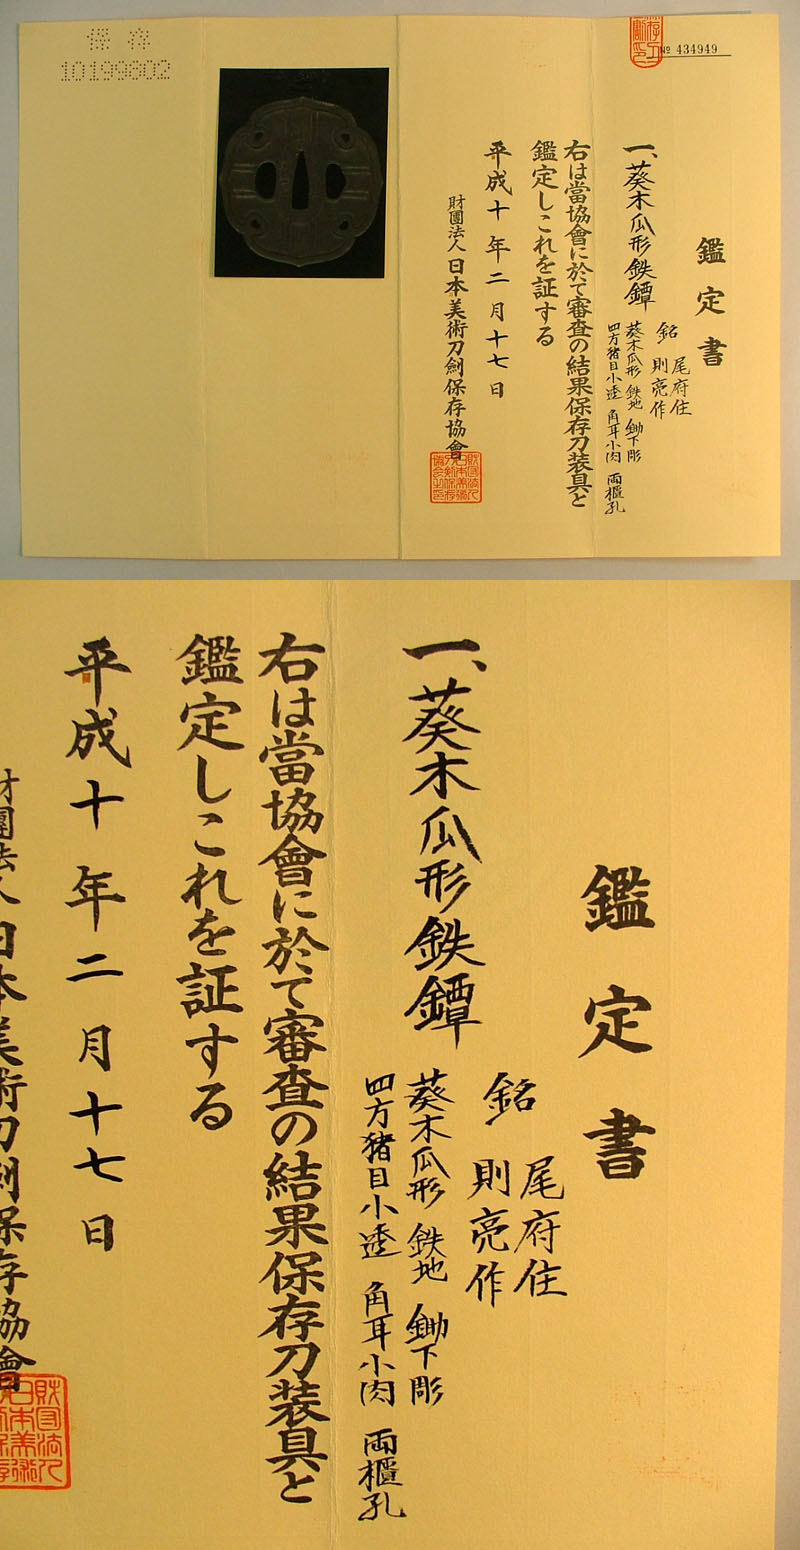 保存
10199802
№ 434949
鑑定書
一、葵木瓜形鉄鐔
銘 尾府住
則亮作
葵木瓜形 鉄地 鋤下彫
四方猪目小透 角耳小肉 両櫃孔
右は當協會に於て審査の結果保存刀装具と
鑑定しこれを証する
平成十年二月十七日
財團法人日本美術刀劍保存協會
鑑定書
一、葵木瓜形鉄鐔
銘 尾府住
則亮作
葵木瓜形 鉄地 鋤下彫
四方猪目小透 角耳小肉 両櫃孔
右は當協會に於て審査の結果保存刀装具と
鑑定しこれを証する
平成十年二月十七日
財團法人日本美術刀劍保存協會